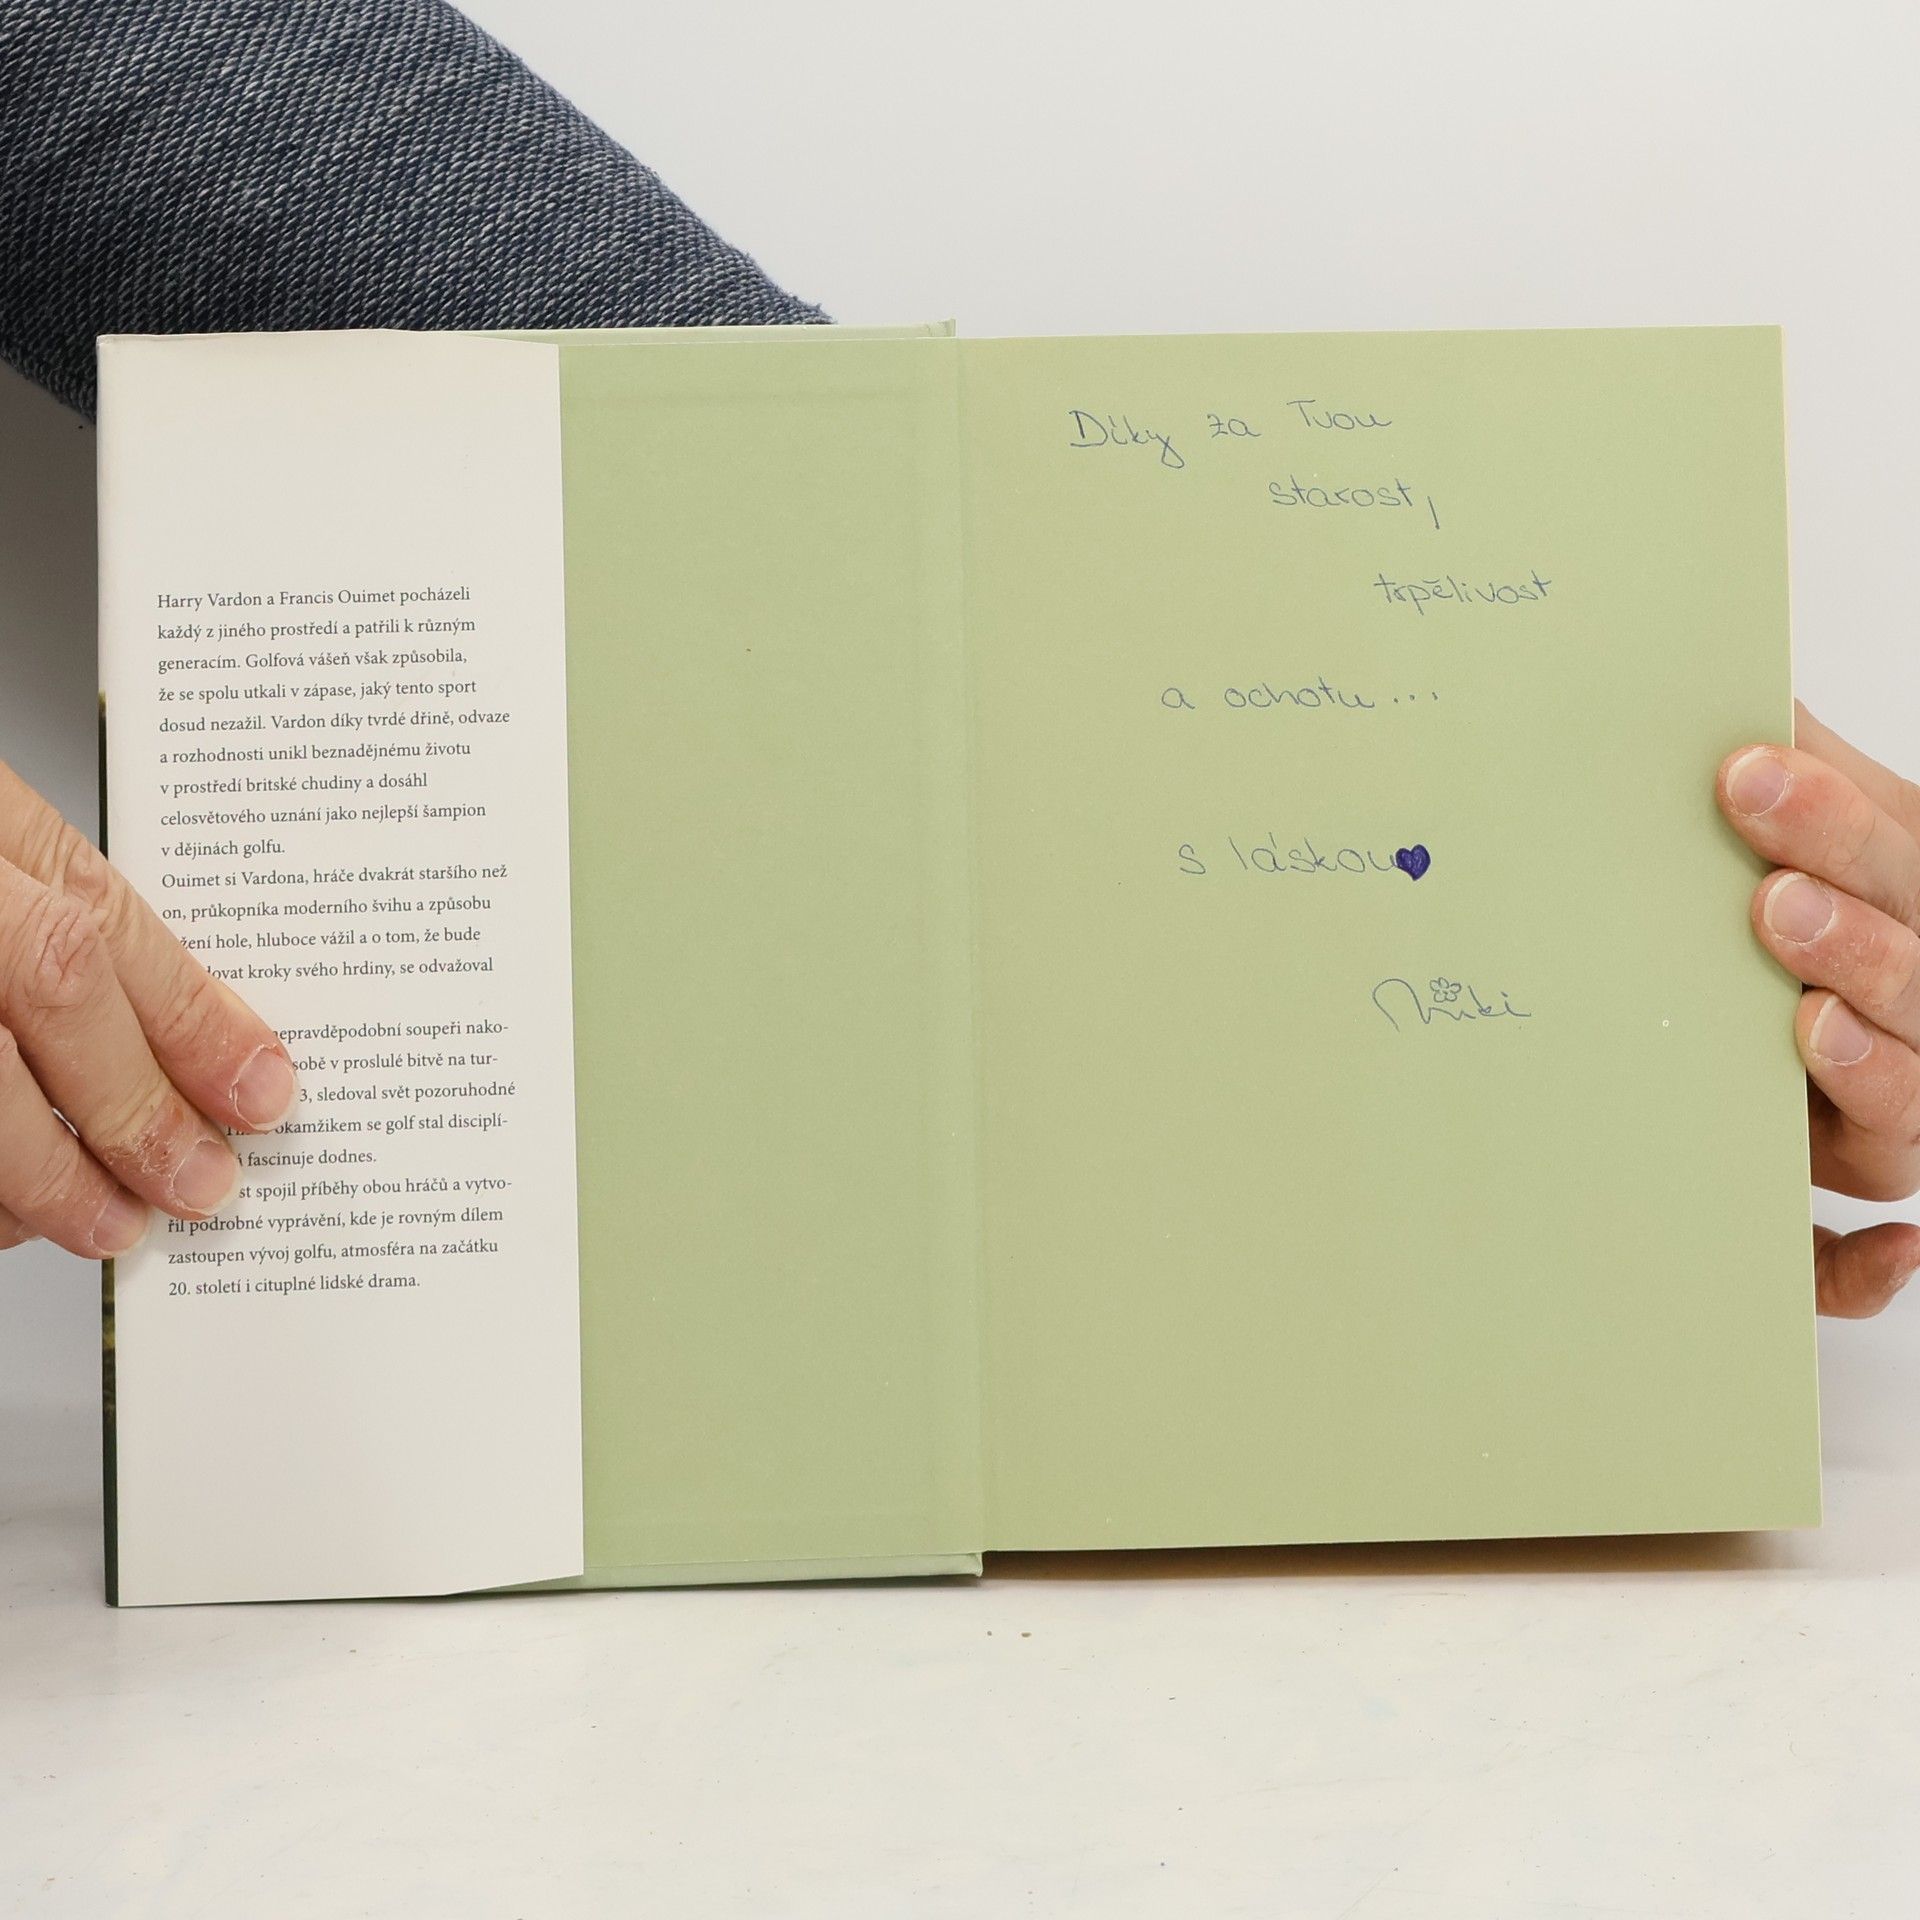 Harry Vardon a Francis Ouimet pocházeli
každý z jiného prostředí a patřili k různým
generacím. Golfová vášeň však způsobila,
že se spolu utkali v zápase, jaký tento sport
dosud nezažil. Vardon díky tvrdé dřině, odvaze
a rozhodnosti unikl beznadějnému životu
v prostředí britské chudiny a dosáhl
celosvětového uznání jako nejlepší šampion
v dějinách golfu.
Ouimet si Vardona, hráče dvakrát staršího než
on, průkopníka moderního švihu a způsobu
žení hole, hluboce vážil a o tom, že bude
lovat kroky svého hrdiny, se odvažoval
nepravděpodobní soupeři nako-
sobě v proslulé bitvě na tur-
3, sledoval svět pozoruhodné
okamžikem se golf stal disciplí-
fascinuje dodnes.
st spojil příběhy obou hráčů a vytvo-
řil podrobné vyprávění, kde je rovným dílem
zastoupen vývoj golfu, atmosféra na začátku
20. století i cituplné lidské drama.
Díky za Tvou
starost,
trpělivost
a ochotu...
s láskou
Miki